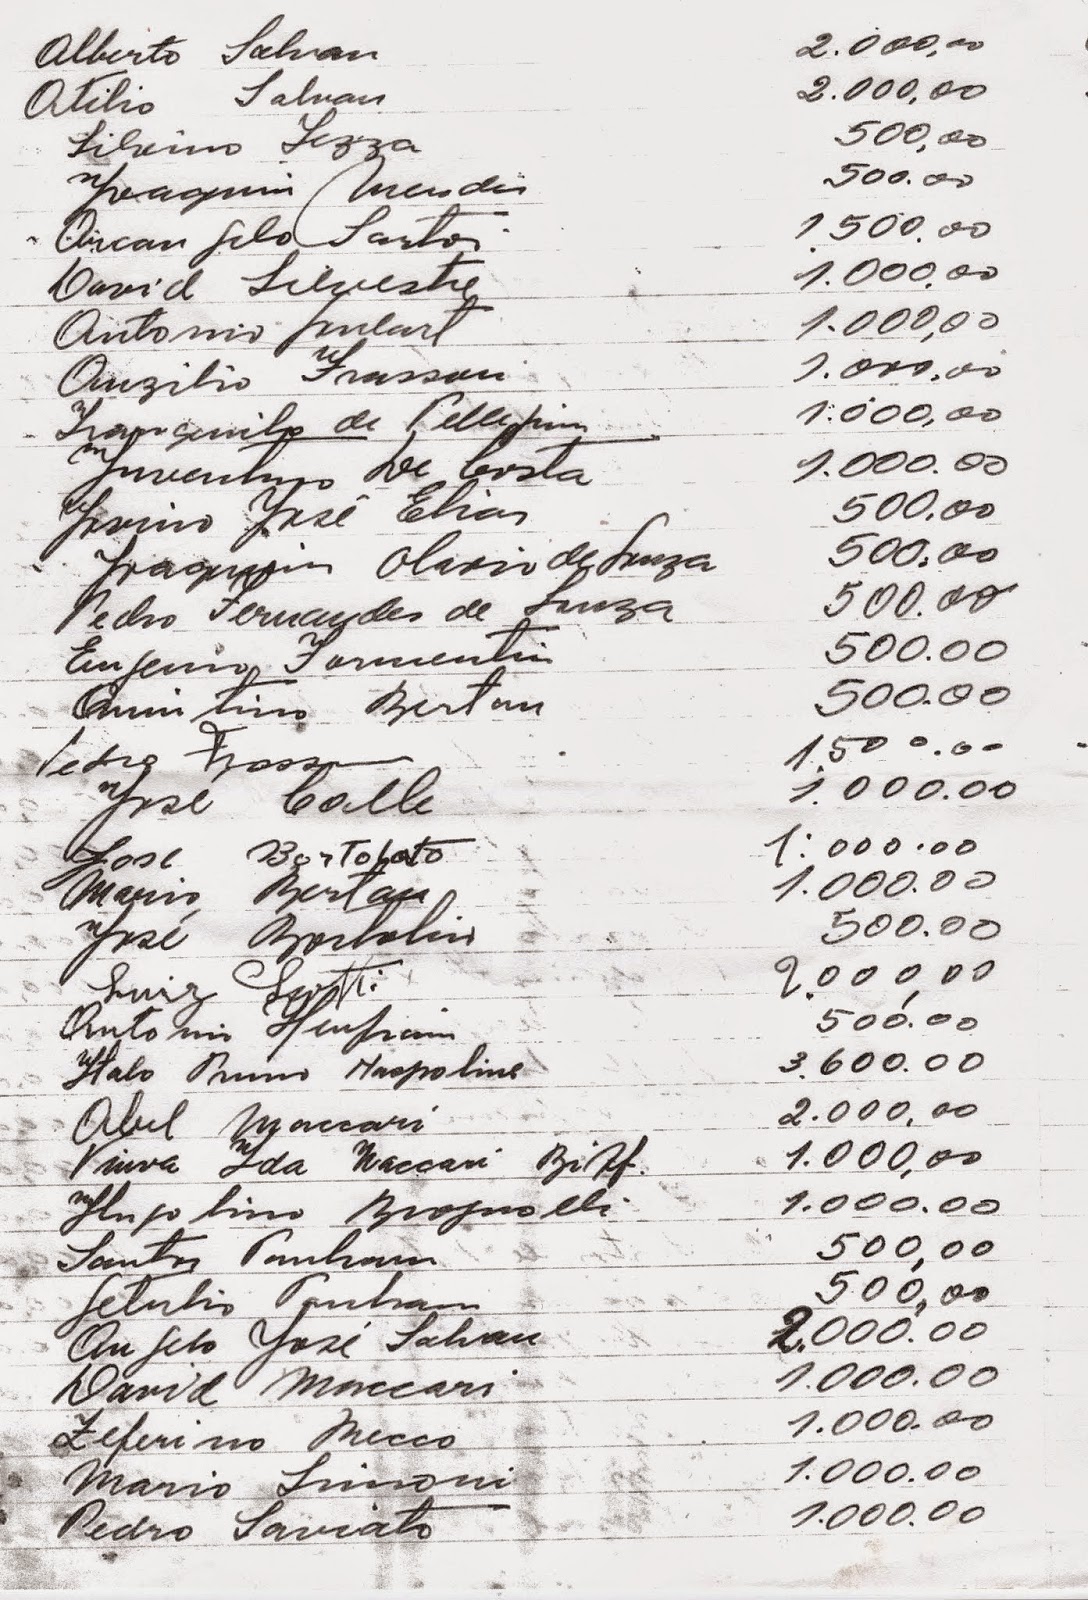 Alberto Salvan 2.000,00
Otilio Salvan 2.000,00
Silvino Lezza 500,00
Joaquim Mendes 500.00
Arcangelo Sartor 1.500.00
David Silvestre 1.000,00
Antonio Goulart 1.000,00
Auzilio Frasson 1.000,00
Tranquilo de Pellegrin 1.000,00
Juventino De Costa 1.000.00
Jovino José Elias 500.00
Joaquim Olavio de Souza 500.00
Pedro Fernandes de Souza 500.00
Eugenio Formentin 500.00
Quintino Bertan 500.00
Pedro Frasson 1.500.00
José Colle 1.000.00
José Bortolato 1.000.00
Mario Bertan 1.000.00
José Bortolin 500.00
Luiz 2.000,00
Antonio 500.00
Italo Bruno 3.600.00
Abel Maccari 2.000,00
Viuva Ida Maccari Biff. 1.000,00
Hugolino Brognolli 1.000.00
Santos Panham 500,00
Getulio Panham 500,00
Angelo José Salvan 2.000.00
David Maccari 1.000.00
Zeferino Mecco 1.000.00
Mario Simoni 1.000.00
Pedro Saviato 1.000.00